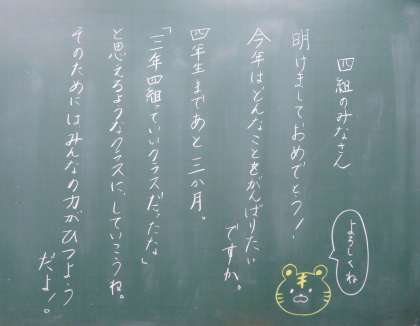 四組のみなさん
明けましておめでとう！
今年はどんなことをがんばりたい
ですか。
四年生まであと三か月。
「三年四組っていいクラスだったな」
と思えるようなクラスに、していこうね。
そのためにはみんなの力がひつよう
だよ！。
よろしくね